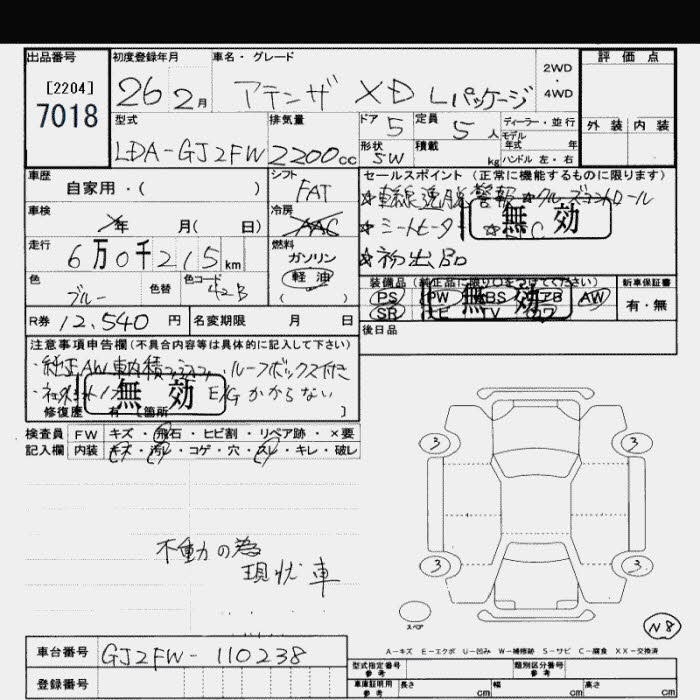 出品番号 初度登録年月 車名・グレード 評価点
[2204] 7018
26 2月 アテンザ XD Lパッケージ 2WD・4WD
外装 内装
型式 排気量 ドア 5 定員 5人 ディーラー・並行
モデル年式 年
LDA-GJ2FW 2200cc 形状 SW 積載 kg ハンドル 左・右
車歴 シフト セールスポイント (正常に機能するものに限ります)
自家用・( ) FAT ☆車線逸脱警報 ☆クルーズコントロール
車検 年 月( 日) 冷房 AAC ☆シートヒーター ☆ETC
無効
走行 燃料 ☆初出品
6万0千215km ガソリン
軽油
( )
色 ブルー 色替 色コード 42B
装備品 (純正品に限り○をつけてください) 新車保証書
PS PW ABS エアB AW 有・無
SR TV カワ
無効
R券 12,540円 名変期限 月 日 後日品
注意事項申告欄(不具合内容等は具体的に記入して下さい)
・純正AW車内積 ルーフボックス付き
E/Gかからない
無効
修復歴 有 [箇所 ]
検査員 FW キズ・飛石・ヒビ割・リペア跡・×要
記入欄 内装 キズ・汚レ・コゲ・穴・スレ・キレ・破レ
3 3
不動の為
現状車
3 3
スペア
N8
A-キズ E-エクボ U-凹み W-補修跡 S-サビ C-腐食 XX-交換済
車台番号 GJ2FW-110238
型式指定番号 参考 類別区分番号 参考
登録番号 車庫証明用 参考 長さ cm 幅 cm 高さ cm